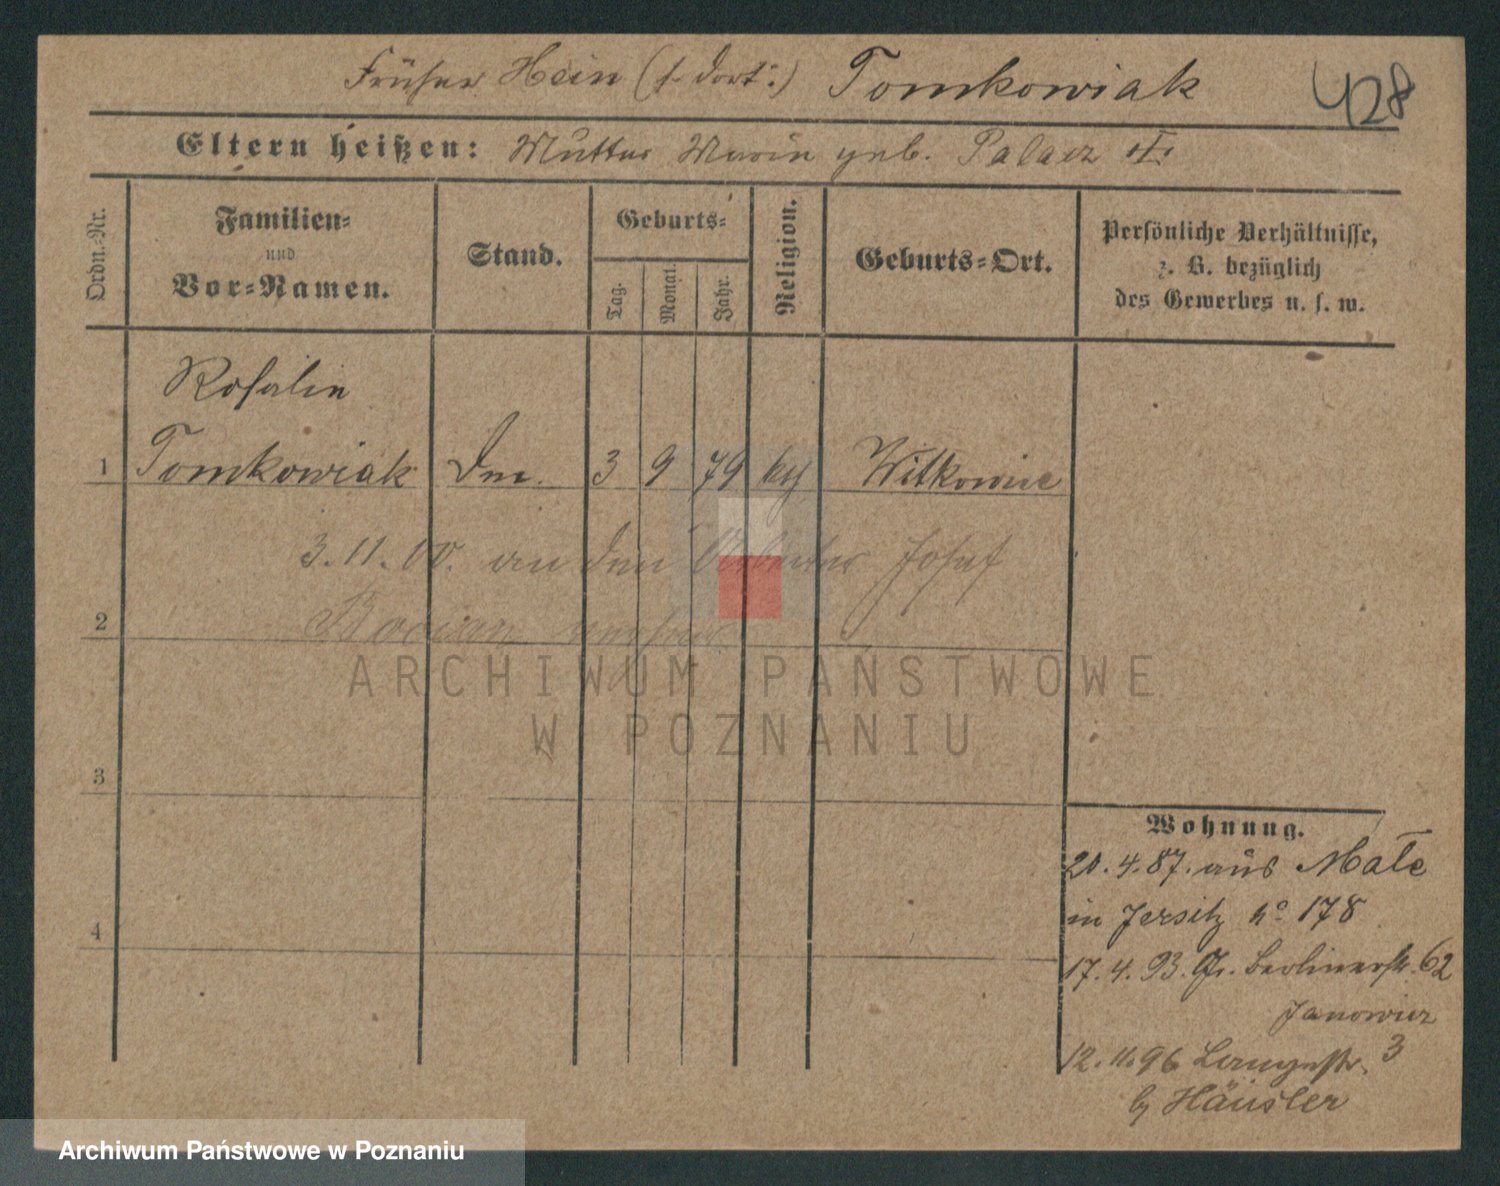 Früher Hein (s. dort.) Tomkowiak 428
Eltern heißen: Mutter Marie geb. Palacz
Ordn.-Nr.
Familien-
und
Vor-Namen.
Stand.
Geburts-
Tag.
Monat.
Jahr.
Religion.
Geburts-Ort.
Persönliche Verhältnisse,
z. B. bezüglich
des Gewerbes u. s. w.
Rosalie
1 Tomkowiak 3 9 79 kth Witkowice
3.11.00. an den Arbeiter Josef
2 Bocian verheir
3
4
Wohnung.
20.4.87. aus
in Jersitz No 178
17.4.93. Gr. Berlinerstr. 62
Janowicz
12.11.96 Langestr. 3
b/ Häusler
ARCHIWUM PAŃSTWOWE
W POZNANIU
Archiwum Państwowe w Poznaniu